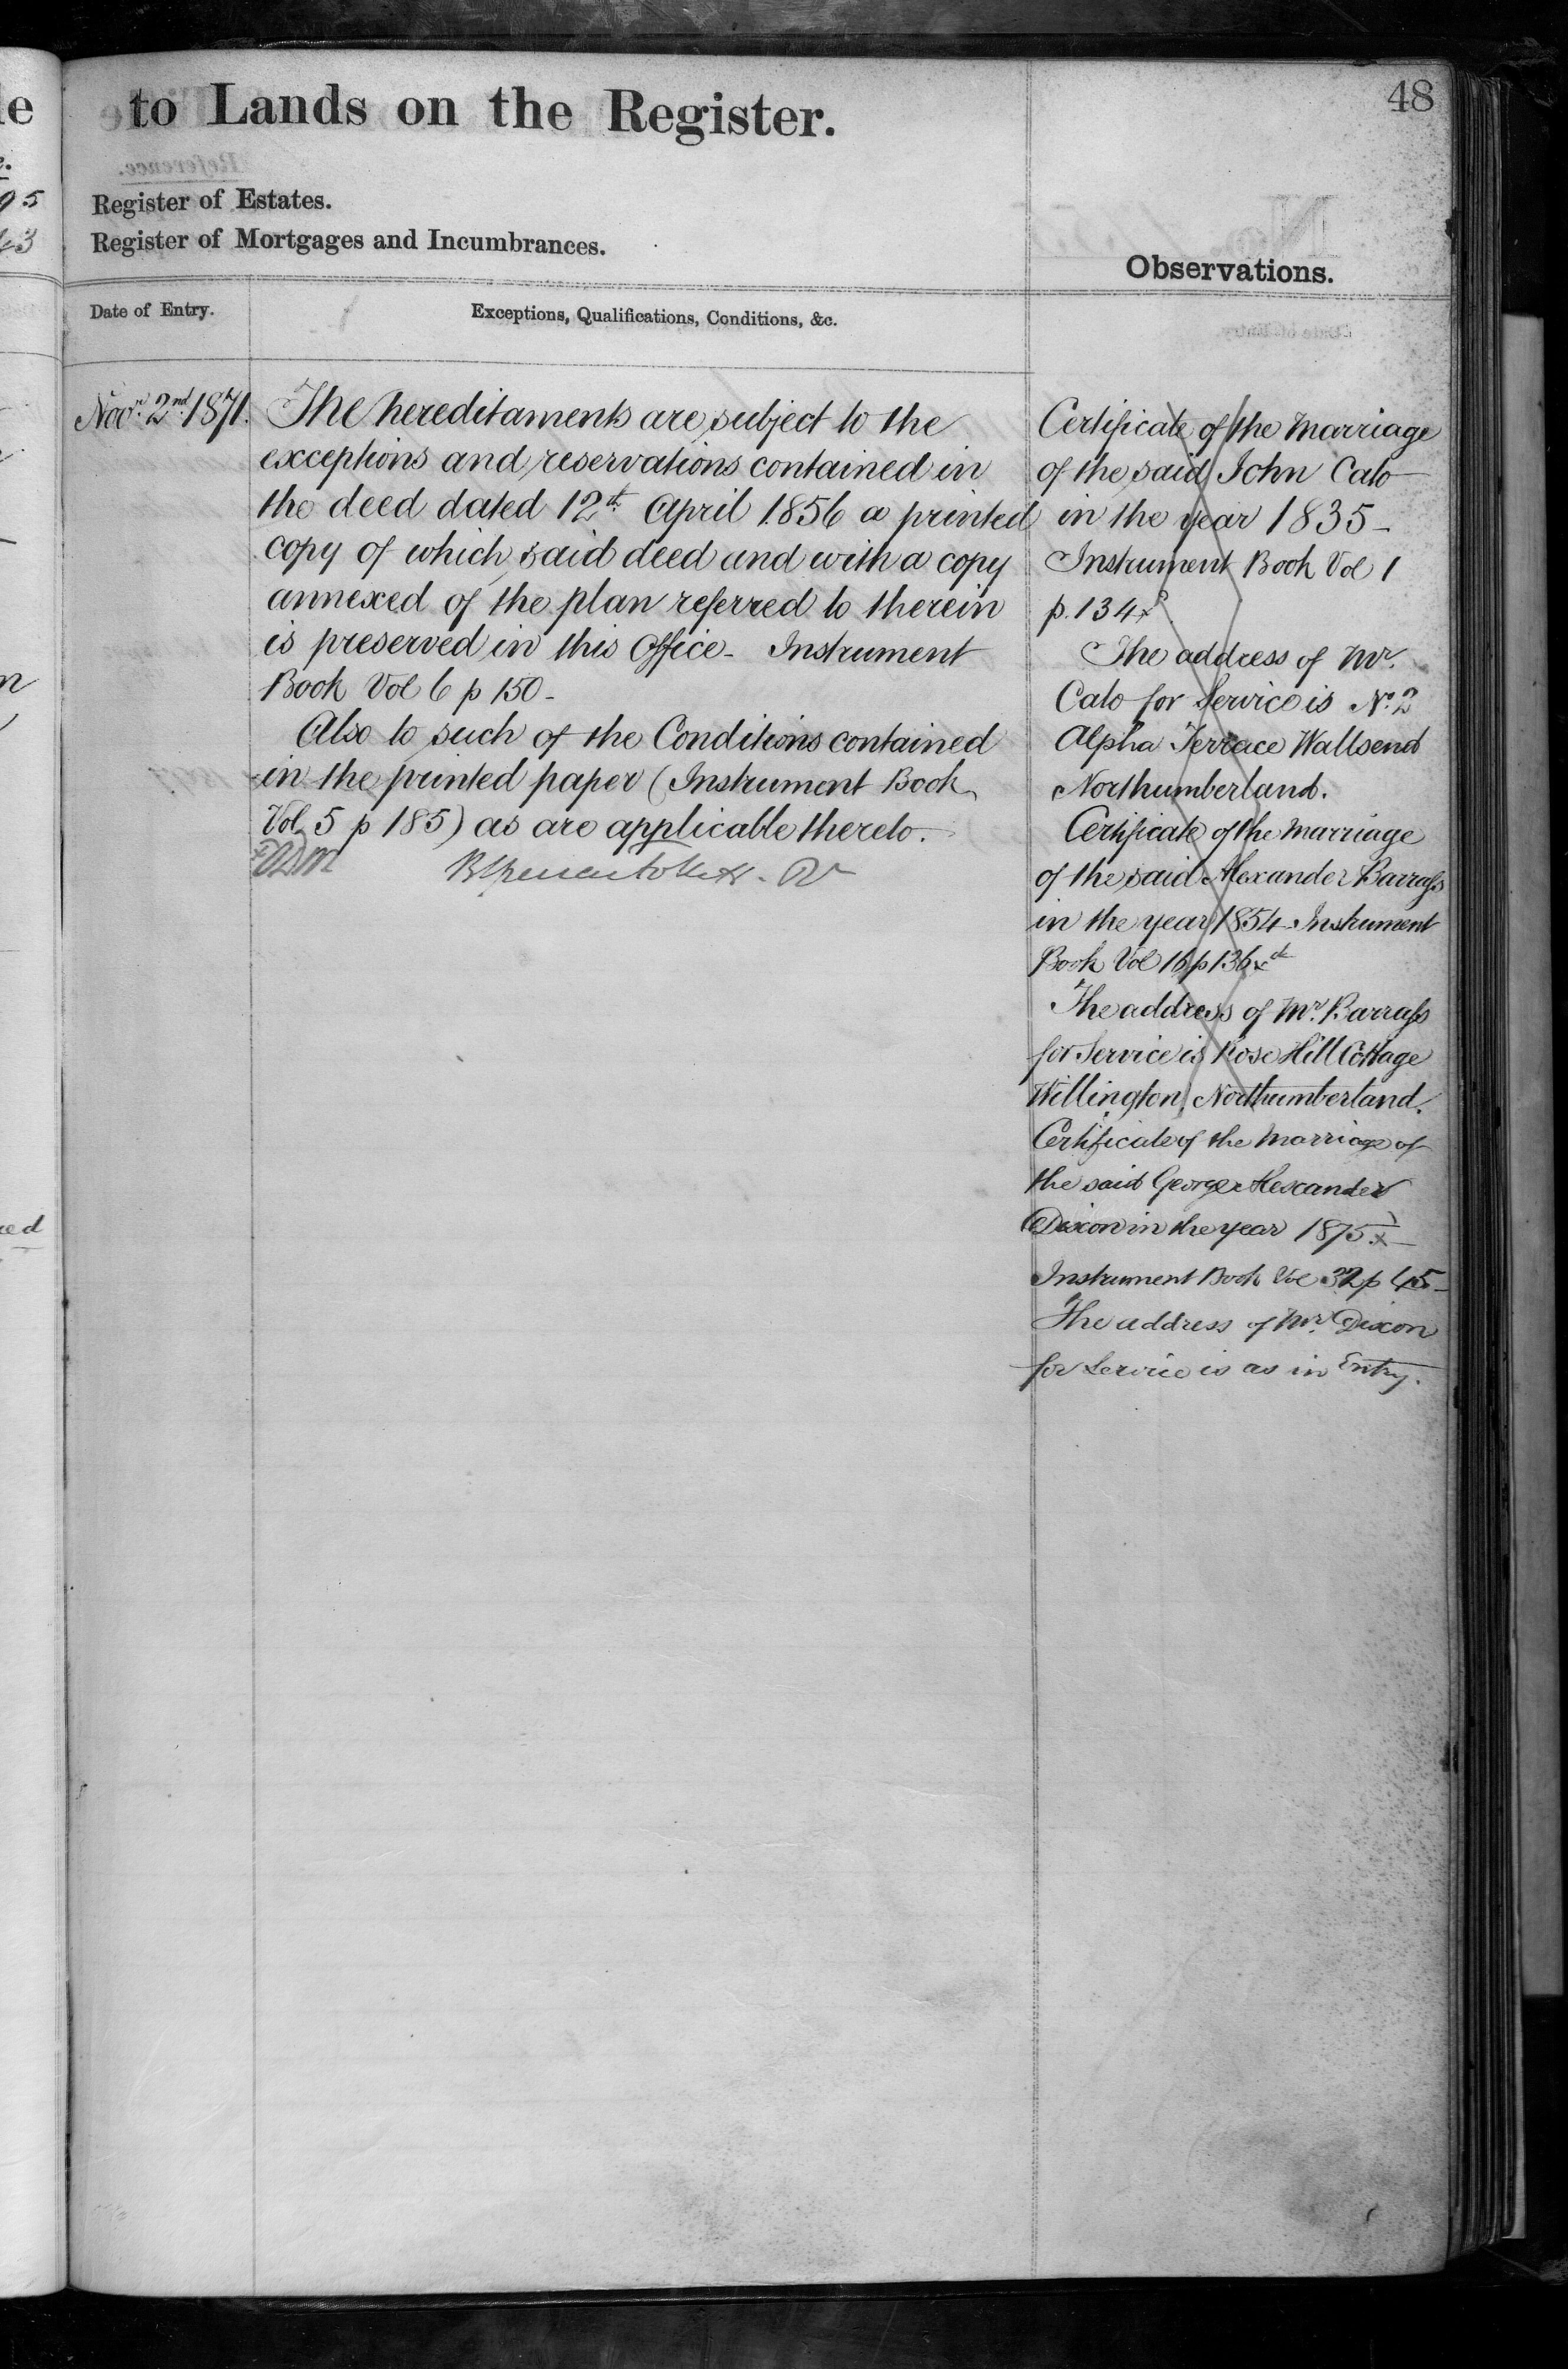 48
to Lands on the Register.
Register of Estates.
Register of Mortgages and Incumbrances.
Observations.
Date of Entry.
Exceptions, Qualifications, Conditions, &c.
Novr. 2nd 1871.
The hereditaments are subject to the
exceptions and reservations contained in
the deed dated 12th April 1856 a printed
copy of which said deed and with a copy
annexed of the plan referred to therein
is preserved in this Office - Instrument
Book Vol 6 p 150 -
Also to such of the Conditions contained
in the printed paper (Instrument Book
Vol 5 p 185) as are applicable thereto.
Certificate of the Marriage
of the said John Cato
in the year 1835 -
Instrument Book Vol 1
p. 134
The address of Mr.
Cato for Service is No. 2
Alpha Terrace Wallsend
Northumberland.
Certificate of the marriage
of the said Alexander Barrass
in the year 1854 Instrument
Book Vol 16 p 136
The address of Mr. Barrass
for Service is Rose Hill Cottage
Willington, Northumberland.
Certificate of the Marriage of
the said George Alexander
Dixon in the year 1875
Instrument Book Vol 32 p 45 -
The address of Mr. Dixon
for Service is as in Entry.